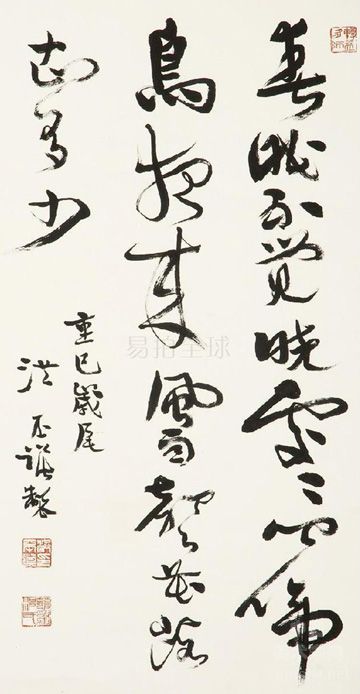 春眠不觉晓处々闻啼
鸟夜来风雨声花落
知多少
重巳岁尾
洪丕谟制
易拍全球